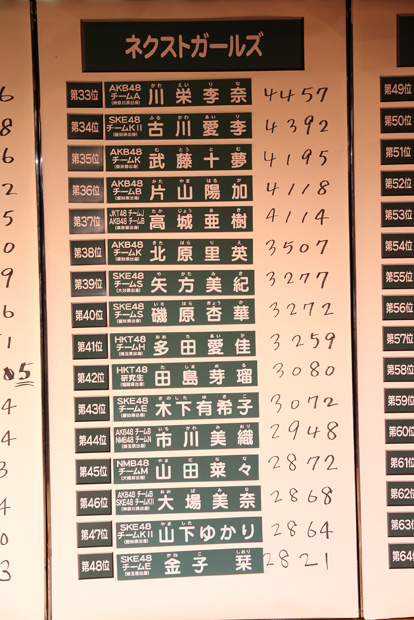 ネクストガールズ
第33位 AKB48 チームA 川栄李奈 4457
第34位 SKE48 チームKII 古川愛李 4392
第35位 AKB48 チームK 武藤十夢 4195
第36位 AKB48 チームB 片山陽加 4118
第37位 JKT48 チームJ AKB48 チームB 高城亜樹 4114
第38位 AKB48 チームK 北原里英 3507
第39位 SKE48 チームS 矢方美紀 3277
第40位 SKE48 チームS 磯原杏華 3272
第41位 HKT48 チームH 多田愛佳 3259
第42位 HKT48 研究生 田島芽瑠 3080
第43位 SKE48 チームE 木下有希子 3072
第44位 AKB48 チームB NMB48 チームN 市川美織 2948
第45位 NMB48 チームM 山田菜々 2872
第46位 AKB48 チームB SKE48 チームKII 大場美奈 2868
第47位 SKE48 チームKII 山下ゆかり 2864
第48位 SKE48 チームE 金子栞 2821
第49位
第50位
第51位
第52位
第53位
第54位
第55位
第56位
第57位
第58位
第59位
第60位
第61位
第62位
第63位
第64位